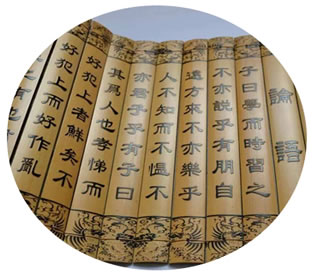 論語
子曰學而時習之
不亦說乎有朋自
遠方來不亦樂乎
人不知而不慍不
亦君子乎有子曰
其爲人也孝悌而
好犯上者鮮矣不
好犯上而好作亂